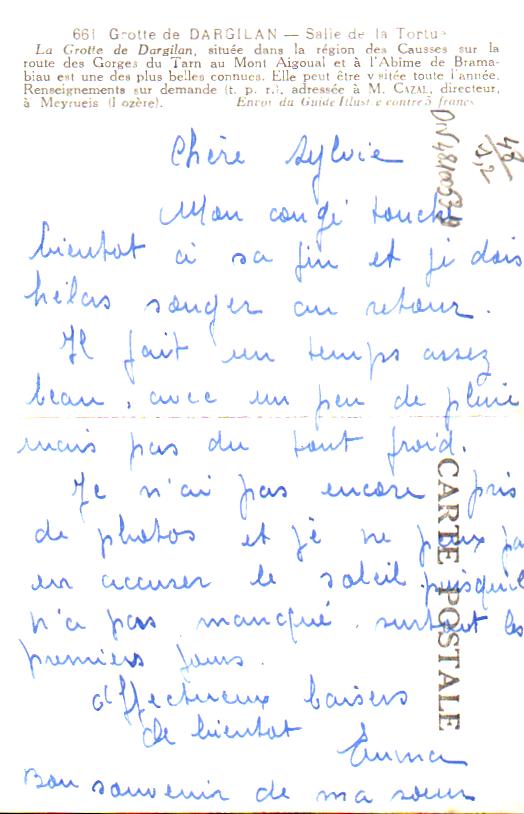 661 Grotte de DARGILAN — Salle de la Tortue
La Grotte de Dargilan, située dans la région des Causses sur la
route des Gorges du Tarn au Mont Aigoual et à l'Abime de Brama-
biau est une des plus belles connues. Elle peut être visitée toute l'année.
Renseignements sur demande (t. p. r.), adressée à M. CAZAL, directeur,
à Meyrueis (Lozère). Envoi du Guide Illust e contre 5 francs
48
Chère Sylvie
Mon congé touche
bientot à sa fin et je dois
hélas songer au retour.
Il fait un temps assez
beau, avec un peu de pluie
mais pas du tout froid.
Je n'ai pas encore pris
de photos et je ne peux pas
en accuser le soleil puisqu'il
n'a pas manqué, surtout les
premiers jours.
Affectueux baisers
de bientot
Emma
Bon souvenir de ma soeur
CARTE POSTALE